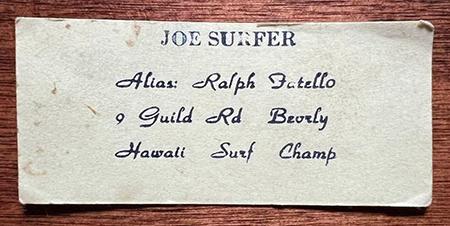 JOE SURFER
Alias: Ralph Fatello
9 Guild Rd Beverly
Hawaii Surf Champ